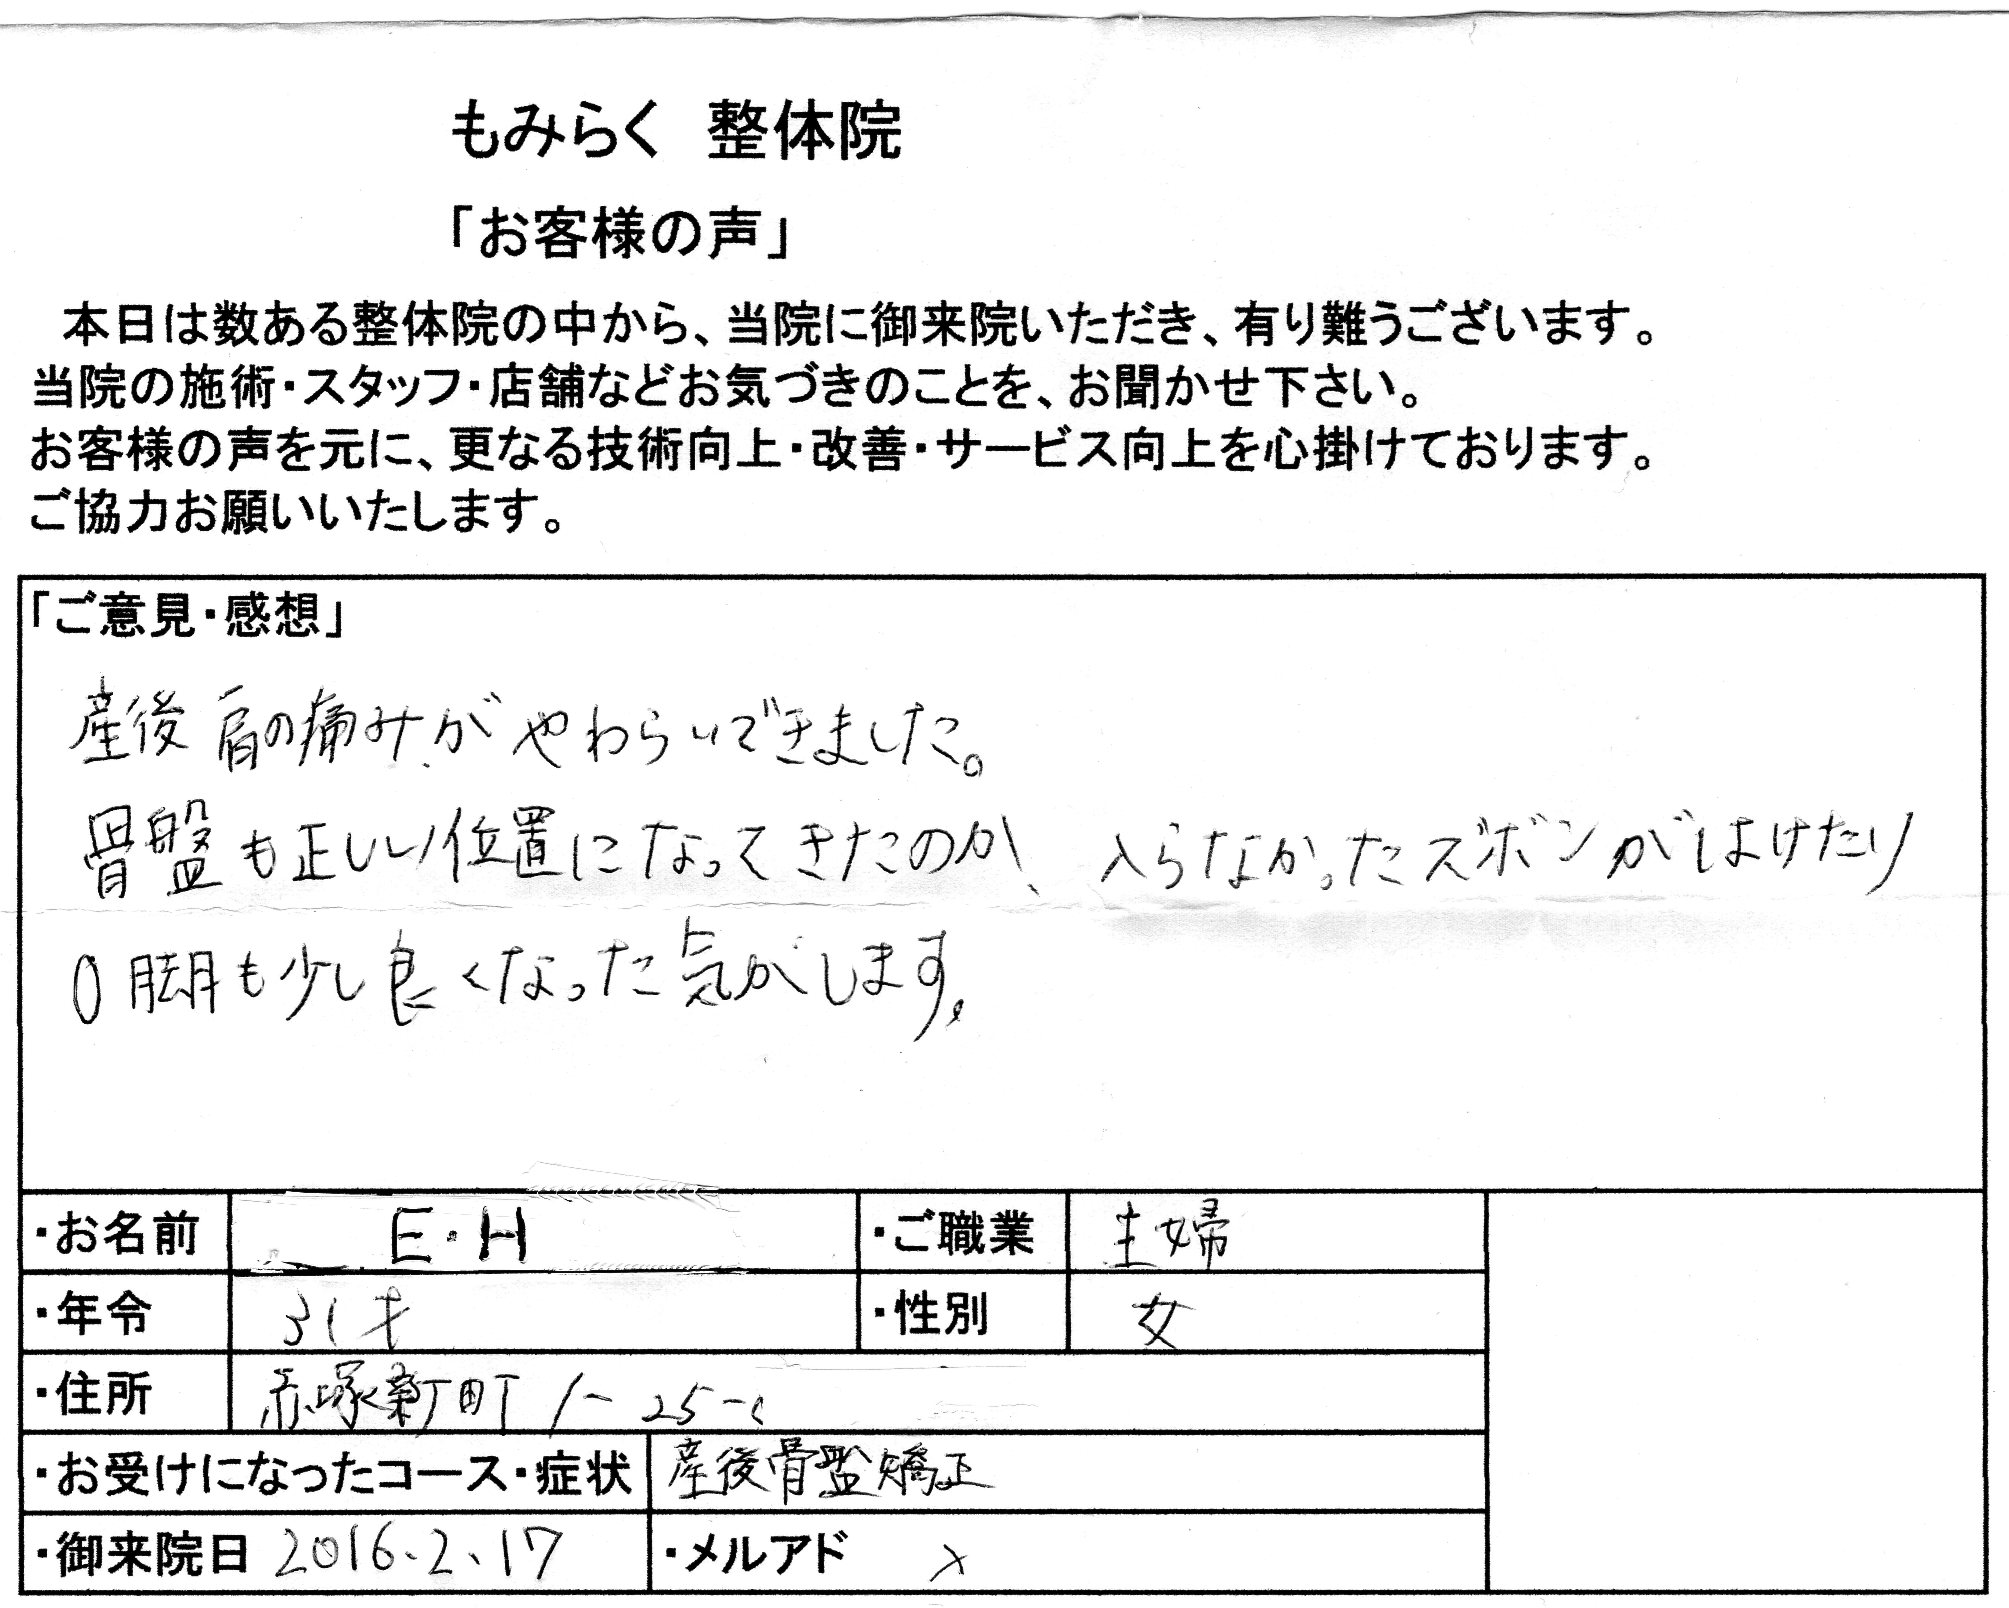 もみらく 整体院
「お客様の声」
本日は数ある整体院の中から、当院に御来院いただき、有り難うございます。
当院の施術・スタッフ・店舗などお気づきのことを、お聞かせ下さい。
お客様の声を元に、更なる技術向上・改善・サービス向上を心掛けております。
ご協力お願いいたします。
「ご意見・感想」
産後肩の痛みがやわらいできました。
骨盤も正しい位置になってきたのか、入らなかったズボンがはけたり
O脚も少し良くなった気がします。
・お名前 E・H ・ご職業 主婦
・年令 31才 ・性別 女
・住所 赤塚新町 1-25-
・お受けになったコース・症状 産後骨盤矯正
・御来院日 2016.2.17 ・メルアド ×